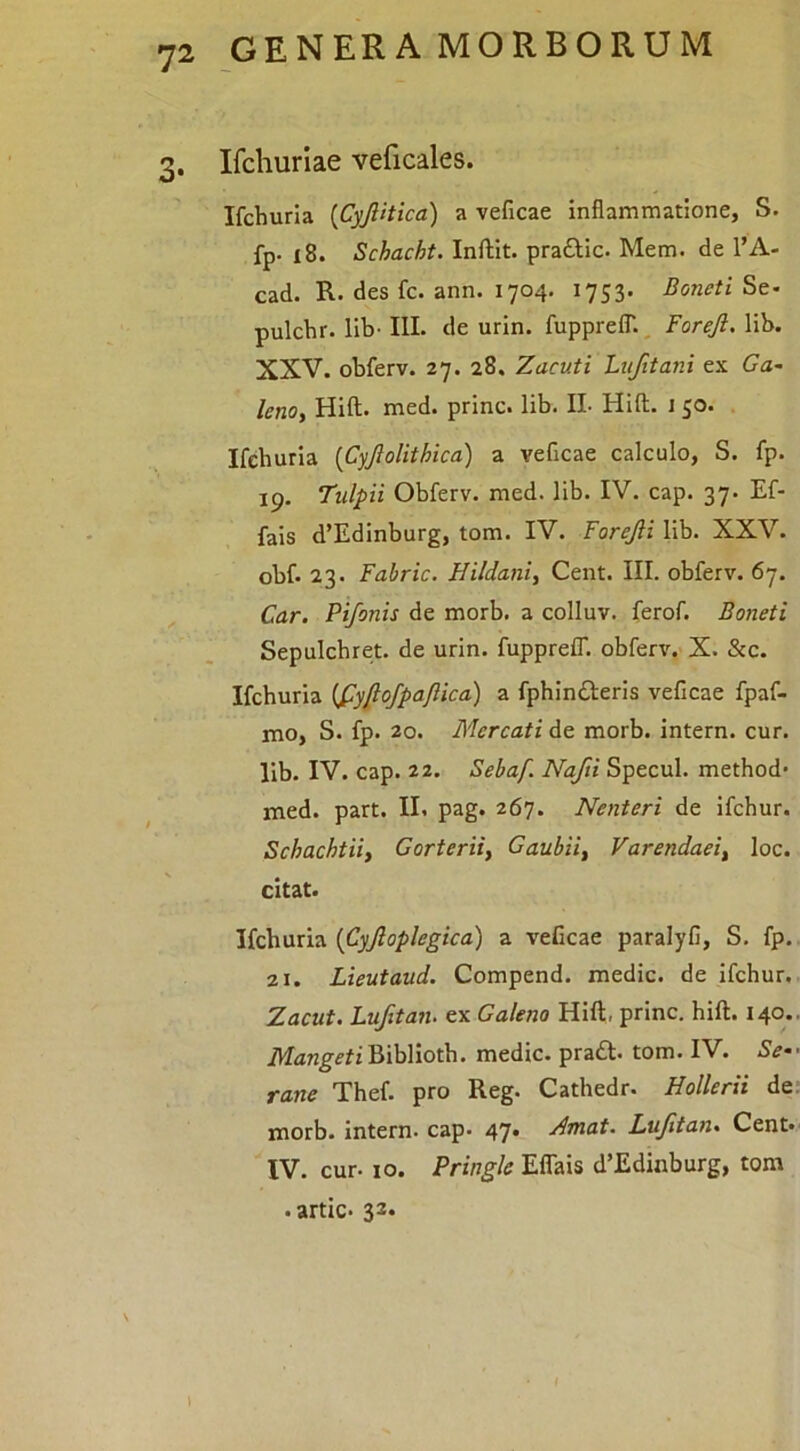 72 GENERA MORBORUM
3. Iſchuriae veſicales.
Iſchuria (Cyſtitica) a veſicae inflammatione, S.
ſp. 18. Schacht. Inſtit. practic. Mem. de l'A-
cad. R. des ſc. ann. 1704. 1753. Boneti Se-
pulchr. lib. III. de urin. ſuppreſſ. Foreſt. lib.
XXV. obſerv. 27. 28. Zacuti Luſitani ex Ga-
leno, Hiſt. med. princ. lib. II. Hiſt. 150.
Iſchuria (Cyſtolithica) a veſicae calculo, S. ſp.
19. Tulpii Obſerv. med. lib. IV. cap. 37. Eſ-
ſais d'Edinburg, tom. IV. Foreſti lib. XXV.
obſ. 23. Fabric. Hildani, Cent. III. obſerv. 67.
Car. Piſonis de morb. a colluv. ſeroſ. Boneti
Sepulchret. de urin. ſuppreſſ. obſerv. X. &c.
Iſchuria (Cyſtoſpaſtica) a ſphincteris veſicae ſpaſ-
mo, S. ſp. 20. Mercati de morb. intern. cur.
lib. IV. cap. 22. Sebaſ. Naſii Specul. method.
med. part. II, pag. 267. Nenteri de iſchur.
Schachtii, Gorterii, Gaubii, Varendaei, loc.
citat.
Iſchuria (Cyſtoplegica) a veſicae paralyſi, S. ſp.
21. Lieutaud. Compend. medic. de iſchur.
Zacut. Luſitan. ex Galeno Hiſt. princ. hiſt. 140.
Mangeti Biblioth. medic. pract. tom. IV. Se-
rane Theſ. pro Reg. Cathedr. Hollerii de
morb. intern. cap. 47. Amat. Luſitan. Cent.
IV. cur. 10. Pringle Eſſais d'Edinburg, tom
. artic. 32.